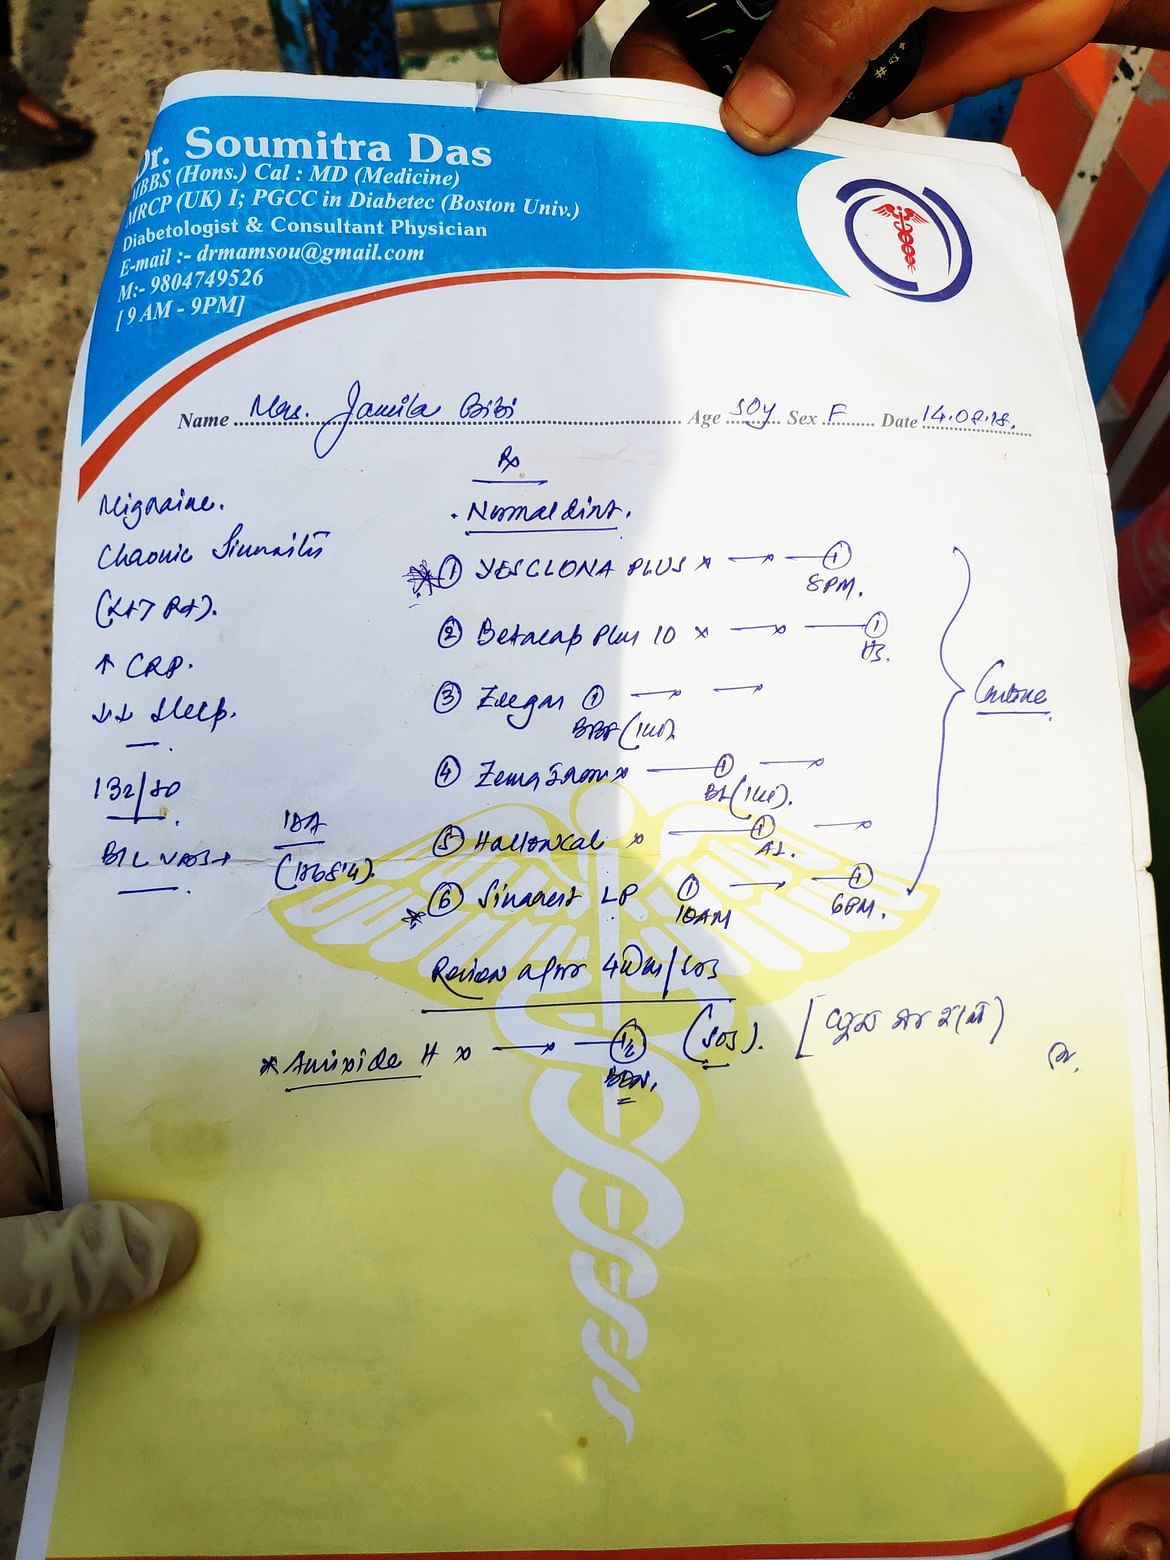 Dr. Soumitra Das
MBBS (Hons.) Cal : MD (Medicine)
MRCP (UK) I; PGCC in Diabetec (Boston Univ.)
Diabetologist & Consultant Physician
E-mail :- drmamsou@gmail.com
M:- 9804749526
[ 9 AM - 9PM]
Name Mrs. Jamila Bibi Age 50y Sex F Date 14.08.18.
Rx
Migraine.
. Normal diet.
Chronic Sinusitis
① YESCLONA PLUS x → — ①
8PM.
(Lt > Rt).
② Betacap Plus 10 x → — ①
HS.
↑ CRP.
③ Zeegar ① → →
BBF
↓↓ Sleep.
④ x — ① →
BL
132/80
⑤ x — ① →
AL.
⑥ Sinarest LP ① → — ①
10AM 6PM.
Continue
Review after 4 /SOS
* H x → — (SOS).